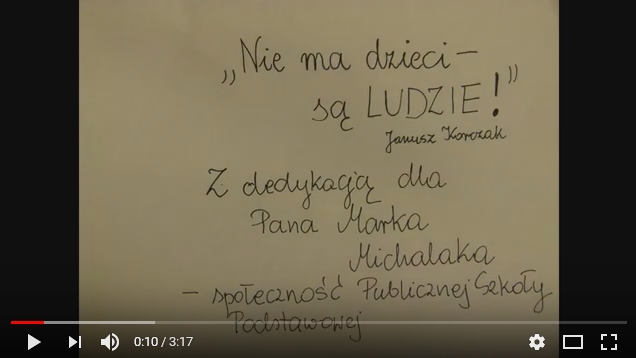 „Nie ma dzieci –
są LUDZIE!”
Janusz Korczak
Z dedykacją dla
Pana Marka
Michalaka
– społeczność Publicznej Szkoły
Podstawowej
0:10 / 3:17